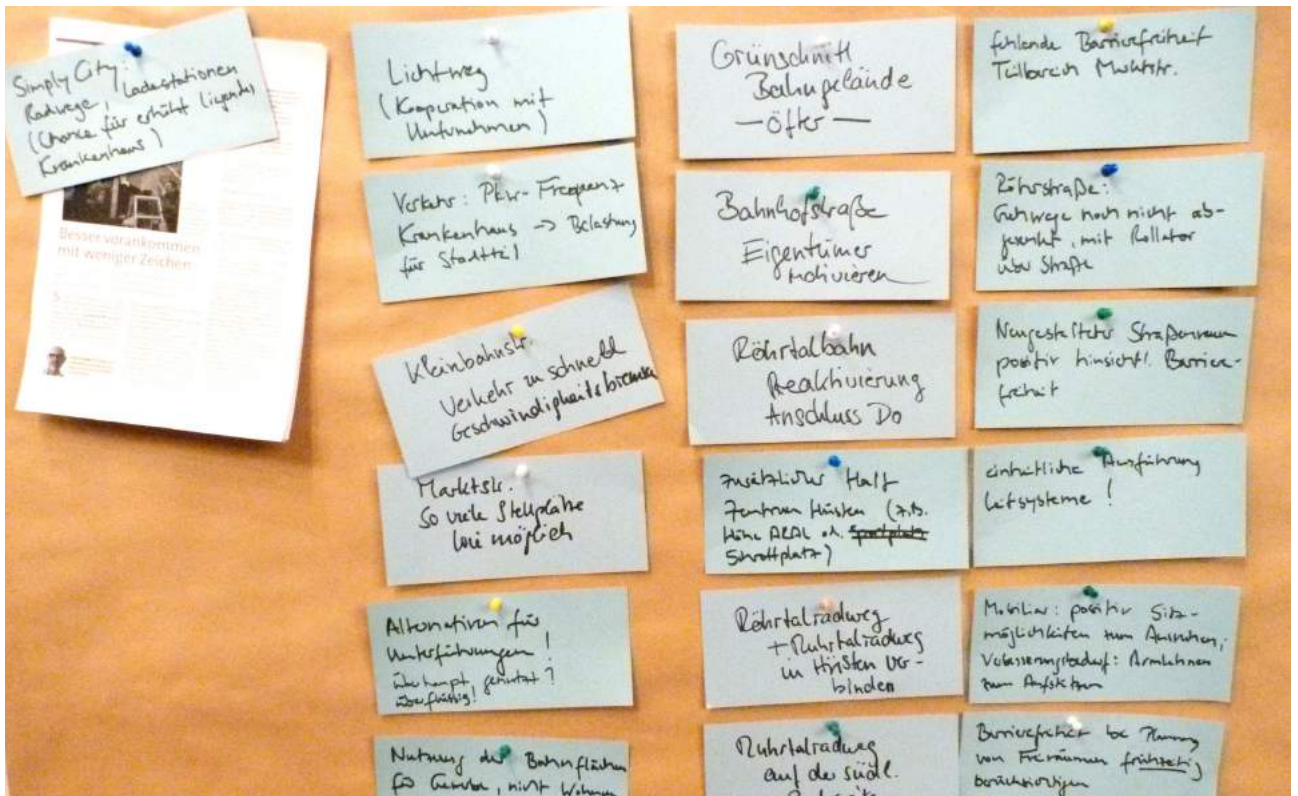 Simply City:
Radwege, Ladestationen
(Chance für erhöht liegendes
Krankenhaus)
Besser vorankommen
mit weniger Zeichen
Lichtweg
(Kooperation mit
Unternehmen)
Verkehr: Pkw-Frequenz
Krankenhaus -> Belastung
für Stadtteil
Kleinbahnstr.
Verkehr zu schnell
Geschwindigkeitsbremsen
Marktstr.
So viele Stellplätze
wie möglich
Alternativen für
Unterführungen!
überhaupt genutzt?
überflüssig!
Nutzung der Bahnflächen
für Gewerbe, nicht Wohnen
Grünschnitt
Bahngelände
— öfter —
Bahnhofstraße
Eigentümer
motivieren
Röhrtalbahn
Reaktivierung
Anschluss Do
zusätzlicher Halt
Zentrum Hüsten (z.B.
Höhe ARAL od.
Schrottplatz)
Röhrtalradweg
+ Ruhrtalradweg
in Hüsten ver-
binden
Ruhrtalradweg
auf der südl.
fehlende Barrierefreiheit
Teilbereich Marktstr.
Röhrstraße:
Gehwege noch nicht ab-
gesenkt, mit Rollator
über Straße
Neugestalteter Straßenraum
positiv hinsichtl. Barriere-
freiheit
einheitliche Ausführung
Leitsysteme!
Mobiliar: positiv Sitz-
möglichkeiten zum Ausruhen,
Verbesserungsbedarf: Armlehnen
zum Aufstützen
Barrierefreiheit bei Planung
von Freiräumen frühzeitig
berücksichtigen